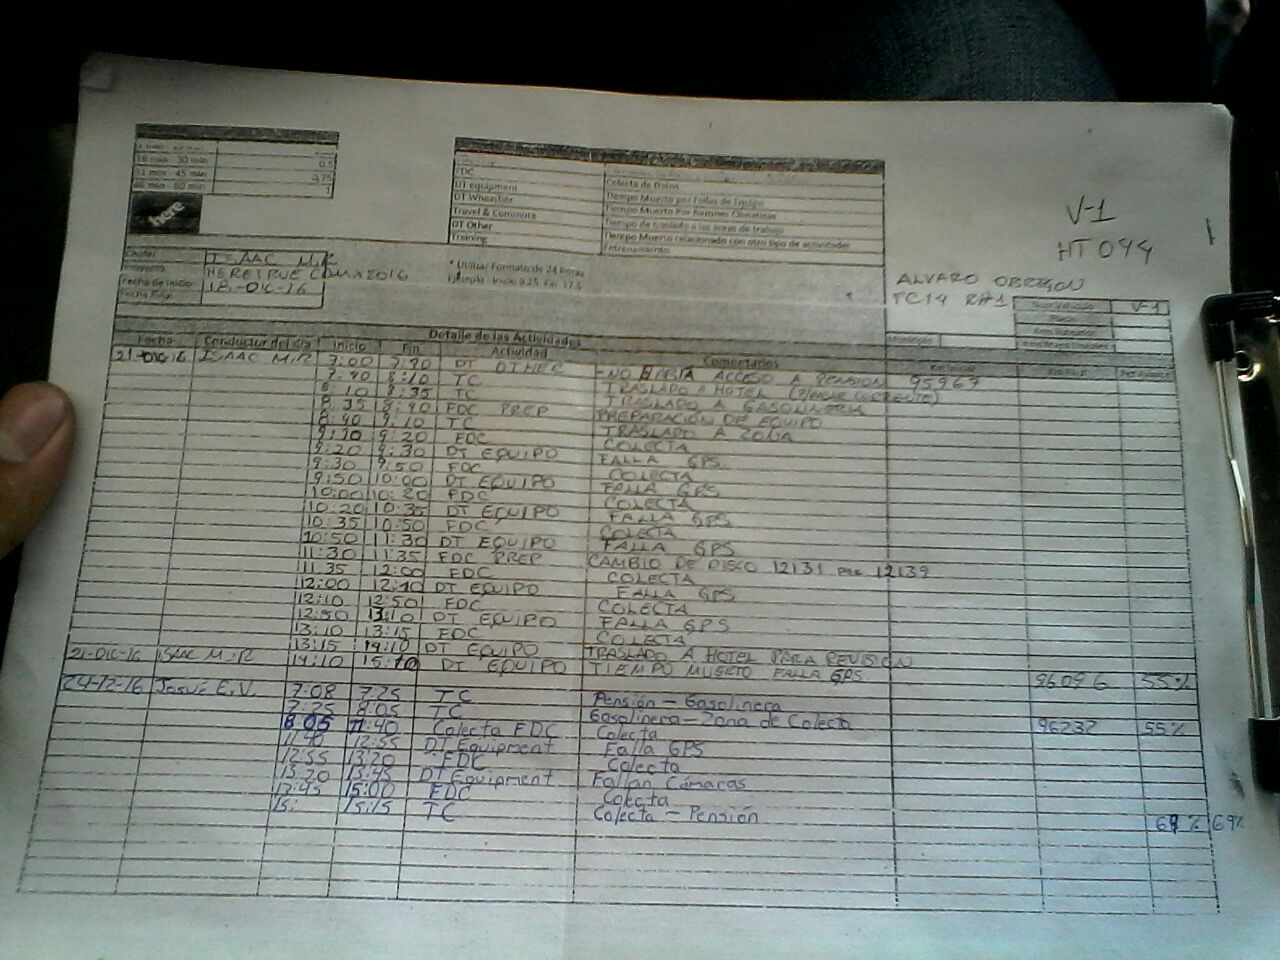 16 min 30 min 0.5
31 min 45 min 0.75
46 min 60 min 1
here
FDC Colecta de Datos
DT equipment Tiempo Muerto por Fallas de Equipo
DT Wheather Tiempo Muerto Por Razones Climaticas
Travel & Commute Tiempo de traslado a las areas de trabajo
DT Other Tiempo Muerto relacionado con otro tipo de actividades
Training Entrenamiento
V-1
HT 094
ISAAC M.R
HERETRUE CDMX2016
Fecha de Inicio: 18-DIC-16
Fecha Final:
* Utilizar Formato de 24 horas
Ejemplo: Inicio 9.25 Fin 17.5
ALVARO OBREGON
TC14 RH1
V-1
Detalle de las Actividades
Fecha Conductor del día Inicio Fin Actividad Comentarios
21-DIC-16 ISAAC M.R 7:00 7:40 DT OTHER -NO HABIA ACCESO A PENSION 95969
7:40 8:10 TC TRASLADO A HOTEL
8:10 8:35 TC TRASLADO A GASOLINERA
8:35 8:40 FDC PREP PREPARACION DE EQUIPO
8:40 9:10 TC TRASLADO A ZONA
9:10 9:20 FDC COLECTA
9:20 9:30 DT EQUIPO FALLA GPS
9:30 9:50 FDC COLECTA
9:50 10:00 DT EQUIPO FALLA GPS
10:00 10:20 FDC COLECTA
10:20 10:35 DT EQUIPO FALLA GPS
10:35 10:50 FDC COLECTA
10:50 11:30 DT EQUIPO FALLA GPS
11:30 11:35 FDC PREP CAMBIO DE DISCO 12131 POR 12139
11:35 12:00 FDC COLECTA
12:00 12:10 DT EQUIPO FALLA GPS
12:10 12:50 FDC COLECTA
12:50 13:10 DT EQUIPO FALLA GPS
13:10 13:15 FDC COLECTA
13:15 14:10 DT EQUIPO TRASLADO A HOTEL PARA REVISION
21-DIC-16 ISAAC M.R 14:10 15:10 DT EQUIPO TIEMPO MUERTO FALLA GPS 96096 55%
24-12-16 Josué E.V. 7:08 7:25 TC Pensión - Gasolinera
7:25 8:05 TC Gasolinera - Zona de Colecta
8:05 11:40 Colecta FDC Colecta 96232 55%
11:40 12:55 DT Equipment Falla GPS
12:55 13:20 FDC Colecta
13:20 13:45 DT Equipment Fallan Cámaras
13:45 15:00 FDC Colecta
15: 15:15 TC Colecta - Pensión 69% 69%